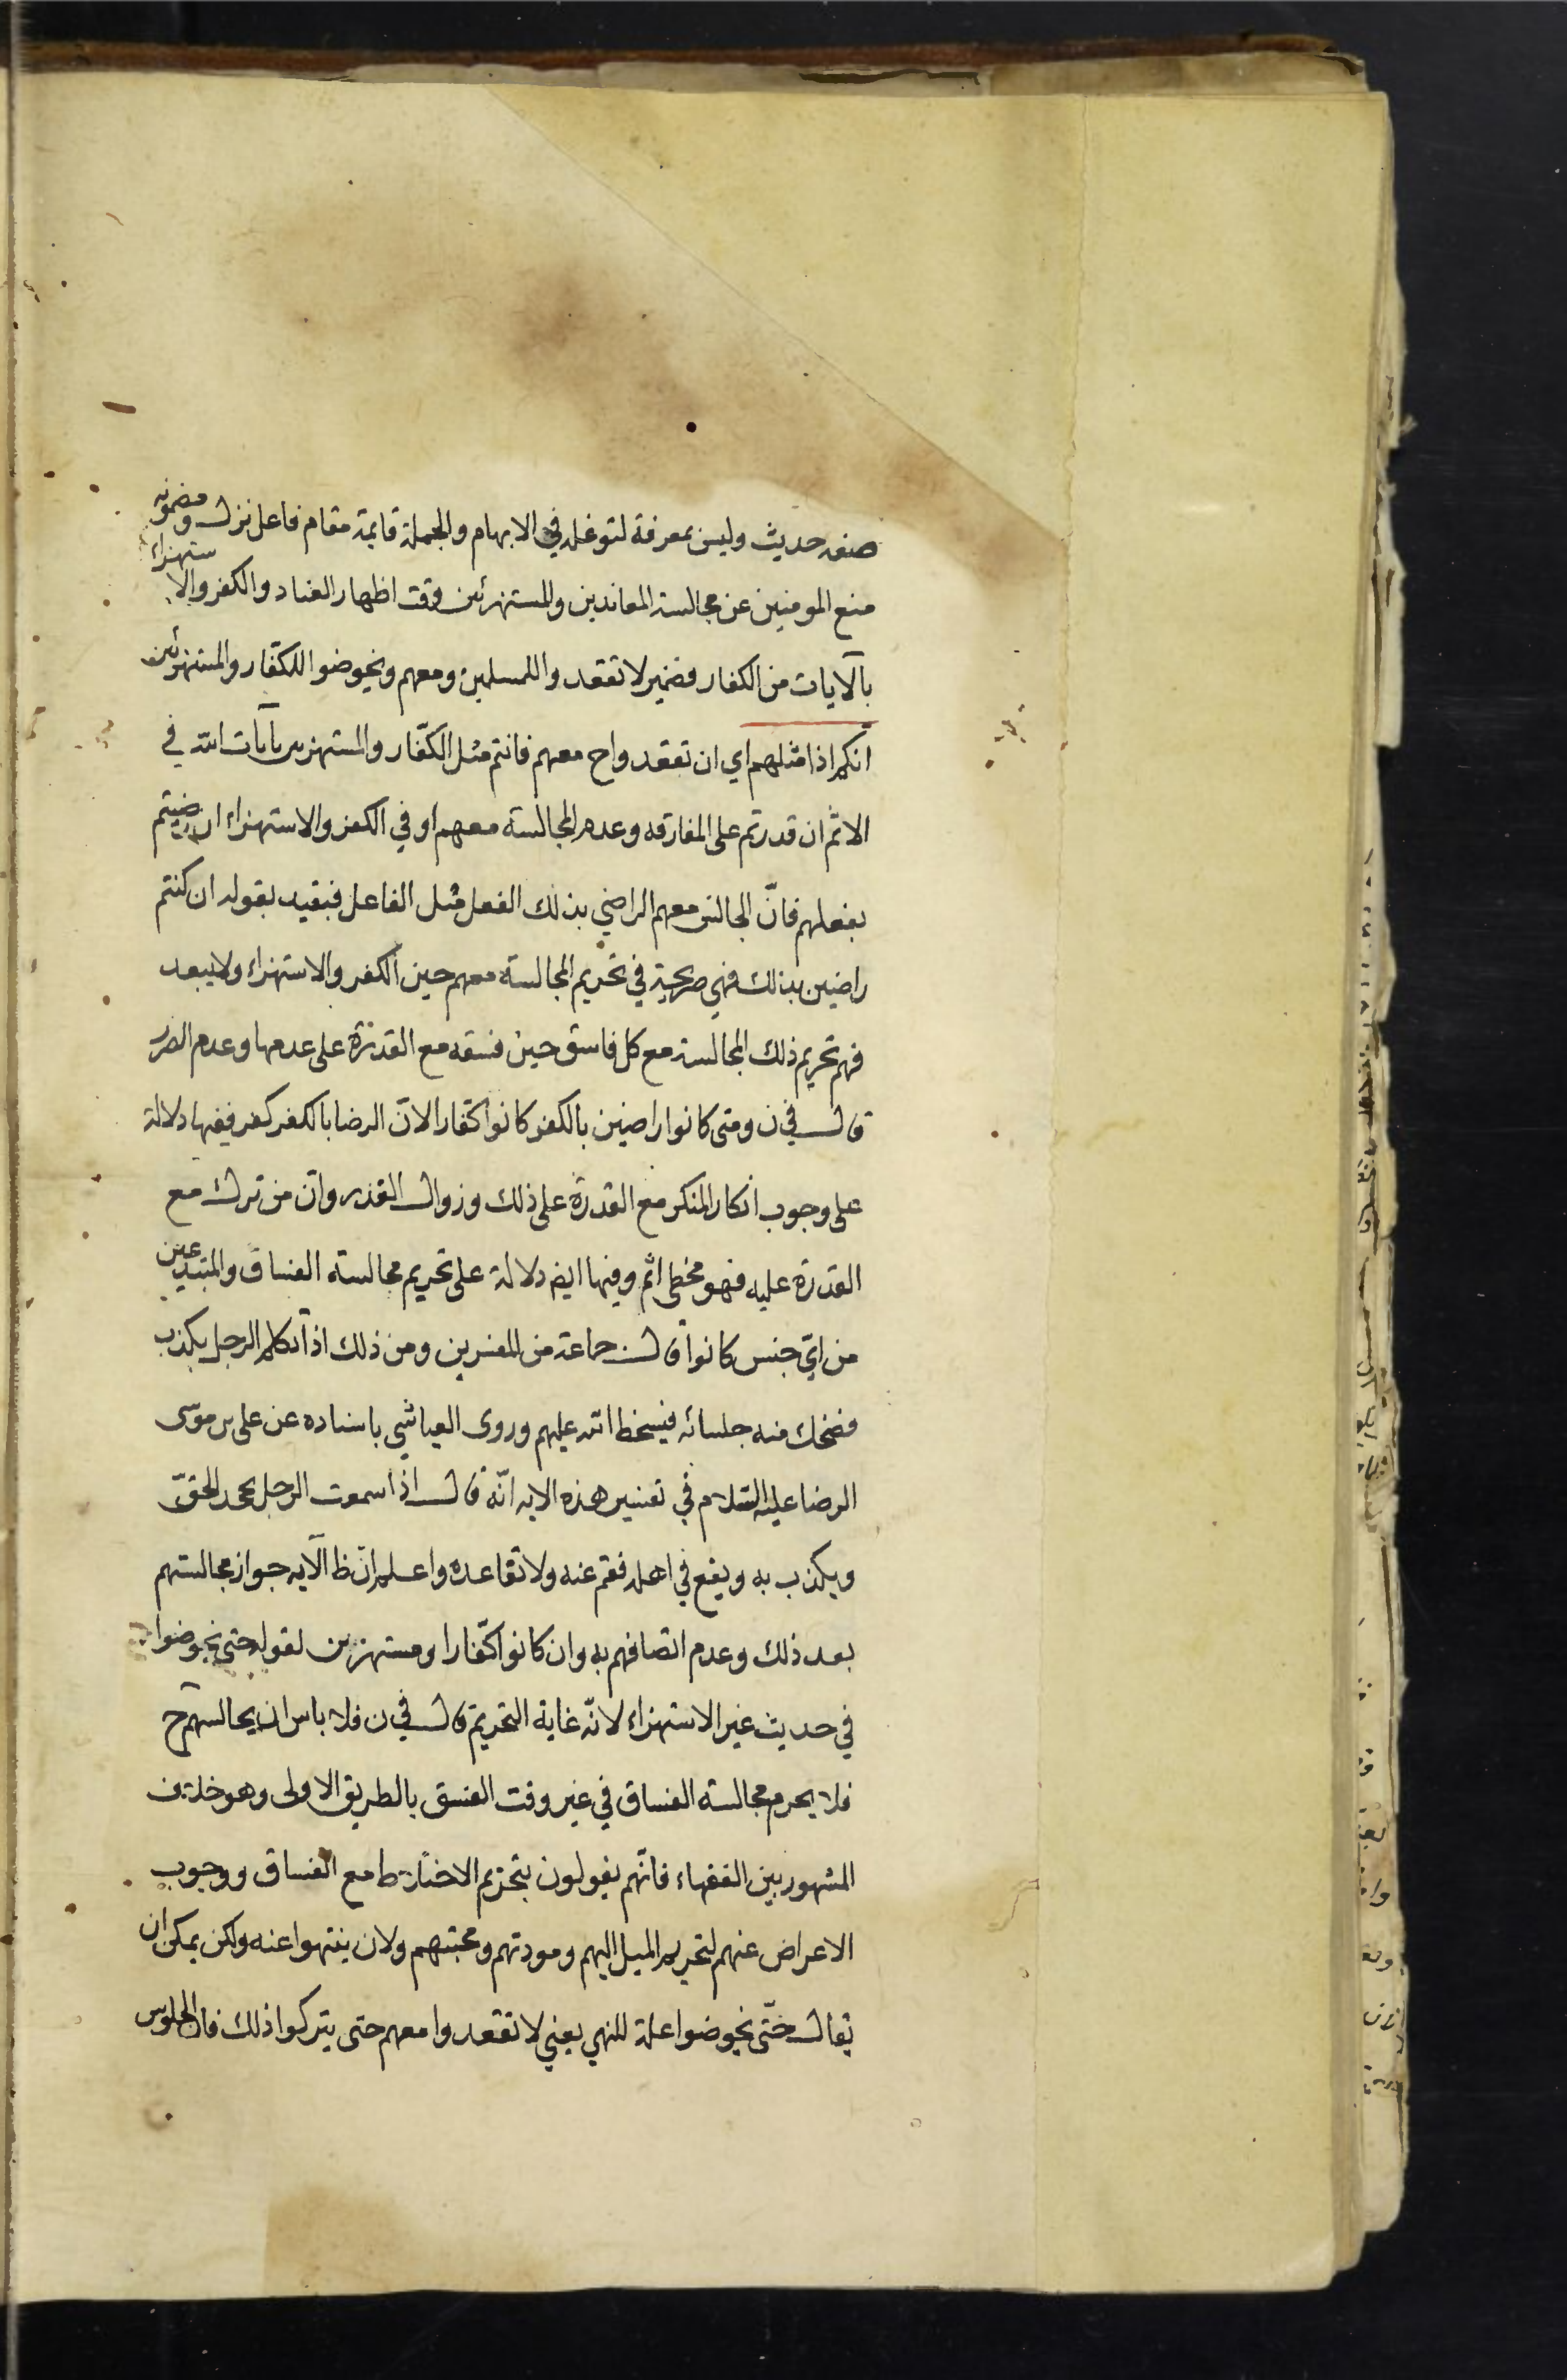 صفه حديث وليس بمعرفة لتوغله في الابهام والجملة قايمة مقام فاعل نزل ومضمونه
منع المومنين عن مجالسة المعاندين والمستهزئين وقت اظهار العناد والكفر والاستهزاء
بالآيات من الكفار فضمير لا تقعدوا للمسلمين ومعهم ويخوضوا للكفّار والمستهزئين
انكم اذا مثلهم اي ان تقعدوا ح معهم فانتم مثل الكفّار والمستهزين بآيات الله في
الاثم ان قدرتم على المفارقه وعدم المجالسة معهم او في الكفر والاستهزاء ان رضيتم
بفعلهم فانّ الجالس معهم الراضي بذلك الفعل مثل الفاعل فيقيد بقوله ان كنتم
راضين بذلك فهي صريحة في تحريم المجالسة معهم حين الكفر والاستهزاء ولا يبعد
فهم تحريم ذلك المجالسة مع كل فاسق حين فسقه مع القدرة على عدمها وعدم الضرر
قال في ن ومتى كانوا راضين بالكفر كانوا كفّارا لانّ الرضا بالكفر كفر ففيها دلالة
على وجوب انكار المنكر مع القدرة على ذلك وزوال العذر وان من ترك مع
القدرة عليه فهو مخطى اثم وفيها ايضا دلالة على تحريم مجالسة الفساق والمبتدعين
من ايّ جنس كانوا قال جماعة من المفسرين ومن ذلك اذا تكلم الرجل بكذب
فضحك منه جلسائه فيسخط الله عليهم وروى العياشي باسناده عن على بن موسى
الرضا عليه السّلام في تفسير هذه الايه انّه قال اذا سمعت الرجل يجحد الحقّ
ويكذب به ويقع في اهله فقم عنه ولا تقاعده واعلم انّ ظ الآيه جواز مجالستهم
بعد ذلك وعدم اتصافهم به وان كانوا كفّارا ومستهزين لقوله حتى يخوضوا
في حديث غير الاستهزاء لانّه غاية التحريم قال في ن فلا باس ان يجالسهم ح
فلا يحرم مجالسة الفساق في غير وقت الفسق بالطريق الاولى وهو خلاف
المشهور بين الفقهاء فانّهم يقولون بتحريم الاختلاط مع الفساق ووجوب
الاعراض عنهم لتحريم الميل اليهم ومودتهم ومحبتهم ولان ينتهوا عنه ولكن يمكن ان
يقال حتّى يخوضوا علة للنهي يعني لا تقعدوا معهم حتى يتركوا ذلك فان الجلوس